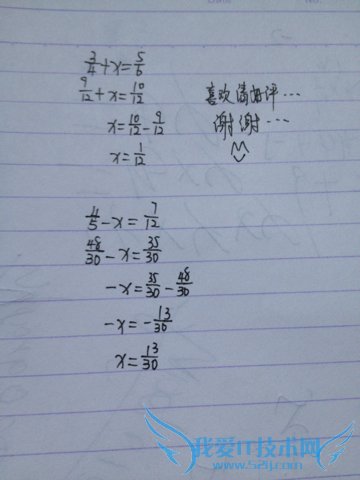 3/4+x=5/6
9/12+x=10/12
x=10/12-9/12
x=1/12
喜欢请好评…
谢谢…
4/5-x=7/12
48/30-x=35/30
-x=35/30-48/30
-x=-13/30
x=13/30
我爱IT技术网
www.52ij.com